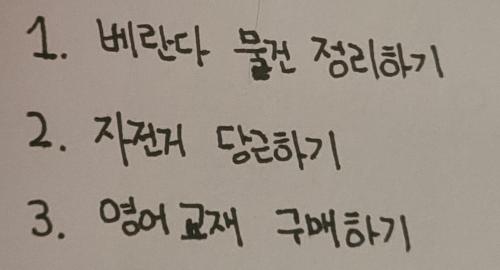 1. 베란다 물건 정리하기
2. 자전거 당근하기
3. 영어교재 구매하기